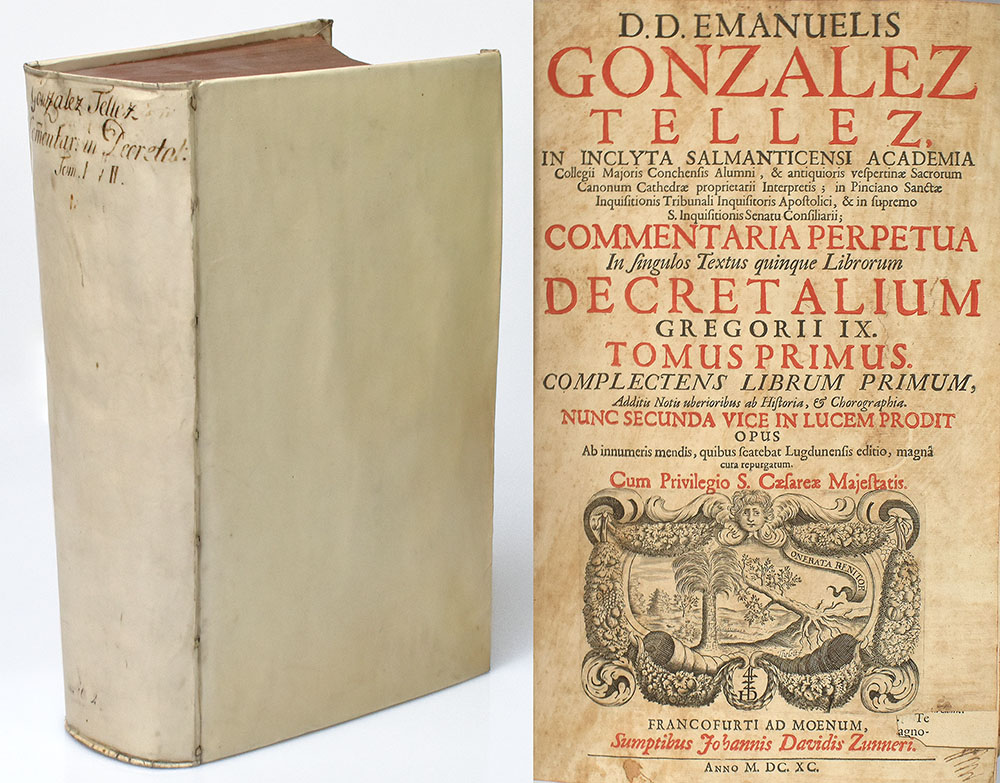 Gonzalez Telez
Com̃entar: in Decretal:
Tom. I & II.
D. D. EMANUELIS
GONZALEZ
TELLEZ,
IN INCLYTA SALMANTICENSI ACADEMIA
Collegii Majoris Conchensis Alumni, & antiquioris vespertinæ Sacrorum
Canonum Cathedræ proprietarii Interpretis; in Pinciano Sanctæ
Inquisitionis Tribunali Inquisitoris Apostolici, & in supremo
S. Inquisitionis Senatu Consiliarii;
COMMENTARIA PERPETUA
In ſingulos Textus quinque Librorum
DECRETALIUM
GREGORII IX.
TOMUS PRIMUS.
COMPLECTENS LIBRUM PRIMUM,
Additis Notis uberioribus ab Hiſtoria, & Chorographia.
NUNC SECUNDA VICE IN LUCEM PRODIT
OPUS
Ab innumeris mendis, quibus ſcatebat Lugdunensis editio, magnâ
cura repurgatum.
Cum Privilegio S. Cæſareæ Majeſtatis.
ONERATA RENITOR
FRANCOFURTI AD MOENUM,
Sumptibus Johannis Davidis Zunneri.
ANNO M. DC. XC.
Te
agno-